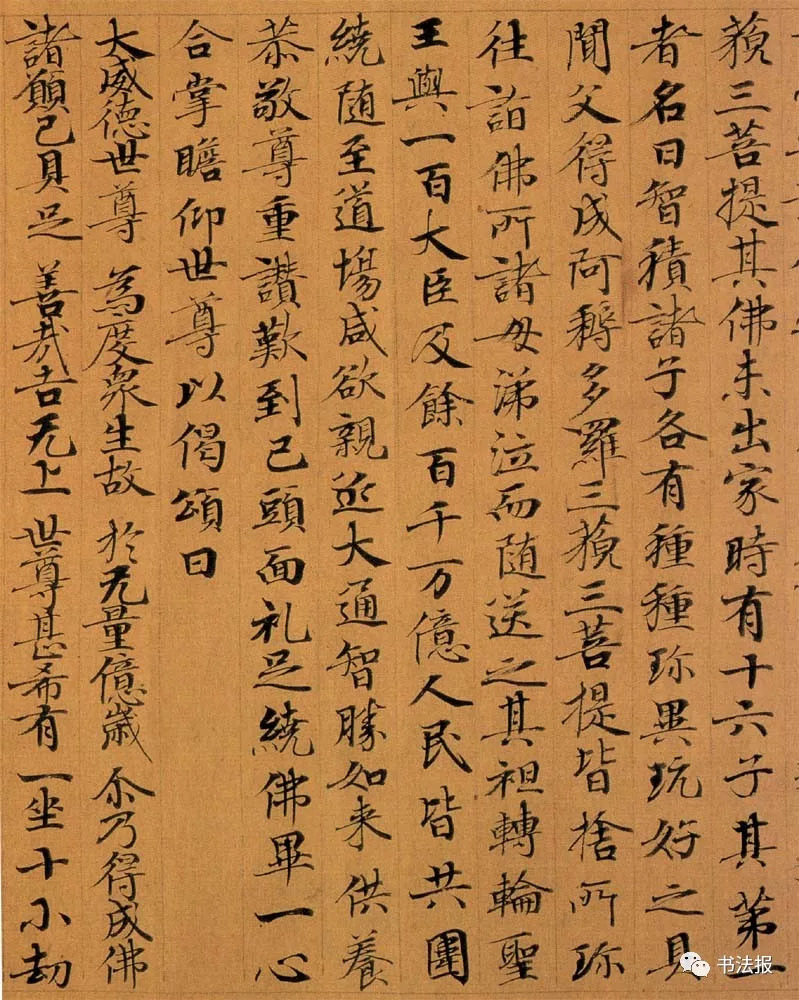 藐三菩提其佛未出家時有十六子其苐一
者名曰智積諸子各有種種珎異玩好之具
聞父得成阿耨多羅三藐三菩提皆捨所珎
往詣佛所諸母涕泣而随送之其祖轉輪聖
王與一百大臣及餘百千万億人民皆共圍
繞随至道場咸欲親近大通智勝如来供養
恭敬尊重讃歎到已頭面礼足繞佛畢一心
合掌瞻仰世尊以偈頌曰
大威德世尊 為度衆生故 於无量億歲 尒乃得成佛
諸願已具足 善哉吉无上 世尊甚希有 一坐十小劫
书法报